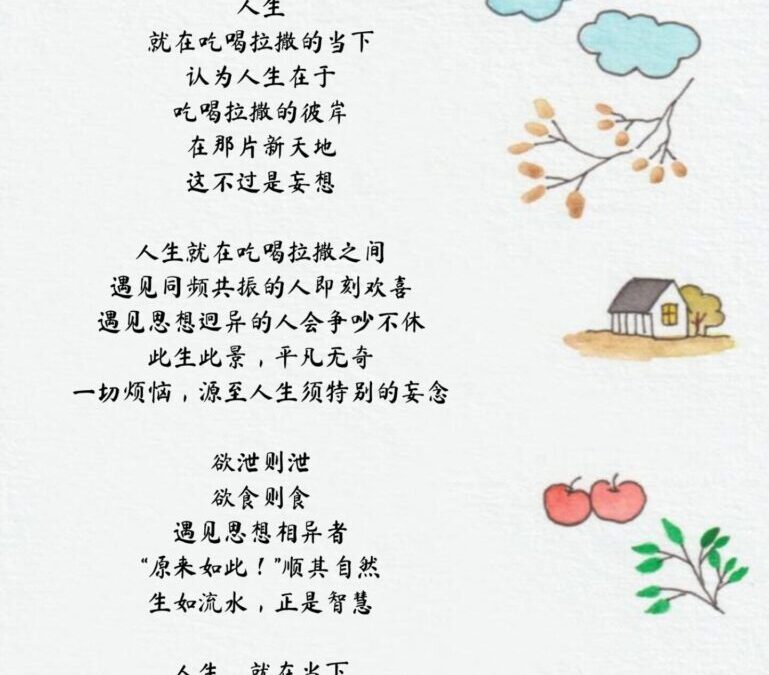 人生
就在吃喝拉撒的当下
认为人生在于
吃喝拉撒的彼岸
在那片新天地
这不过是妄想
人生就在吃喝拉撒之间
遇见同频共振的人即刻欢喜
遇见思想迥异的人会争吵不休
此生此景，平凡无奇
一切烦恼，源至人生须特别的妄念
欲泄则泄
欲食则食
遇见思想相异者
“原来如此！”顺其自然
生如流水，正是智慧
人生，就在当下